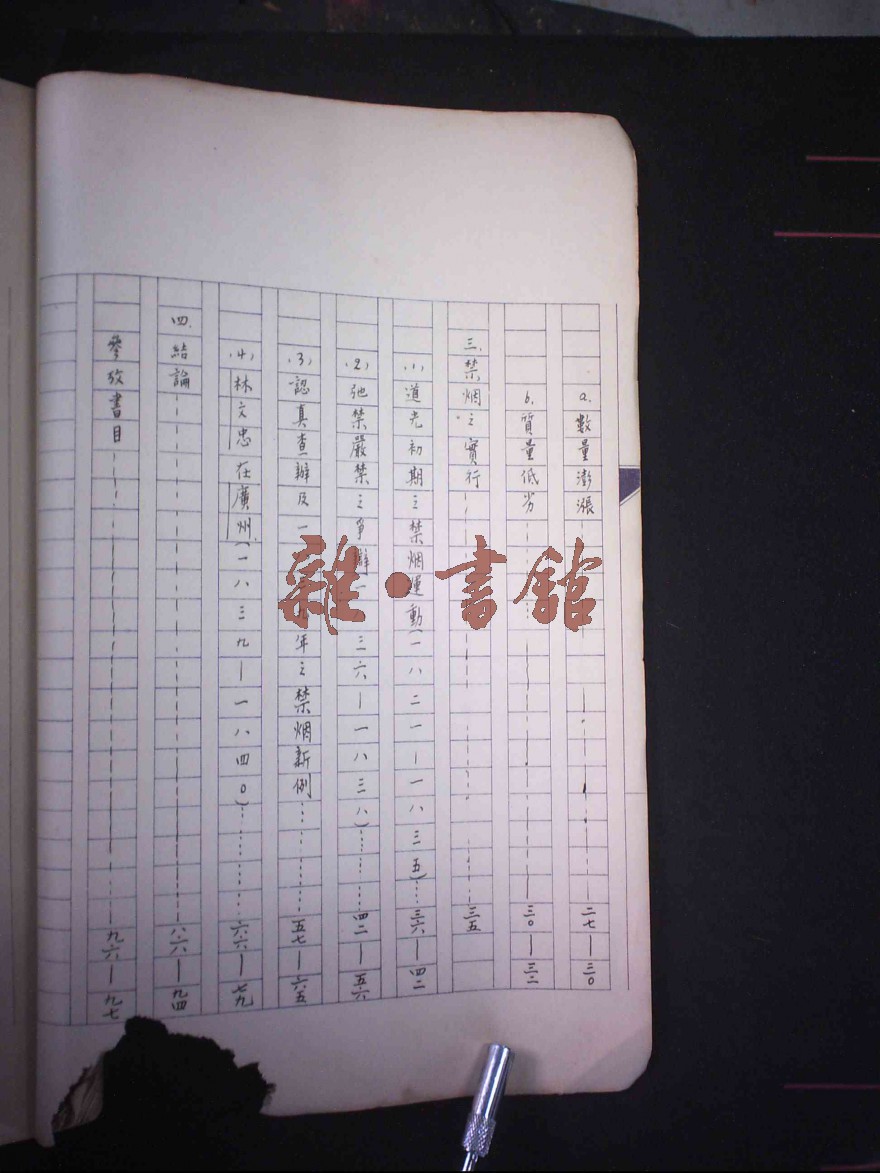 a. 數量澎漲……二七—三〇
b. 質量低劣……三〇—三二
三、禁烟之實行……三五
(1) 道光初期之禁烟運動(一八二一—一八三五)……三六—四二
(2) 弛禁嚴禁之爭辯 三六—一八三八)……四二—五六
(3) 認真查辦及一 九年之禁烟新例……五七—六五
(4) 林文忠在廣州(一八三九—一八四〇)……六六—七九
四、結論……八六—九四
參攷書目……九六—九七
雜·書館